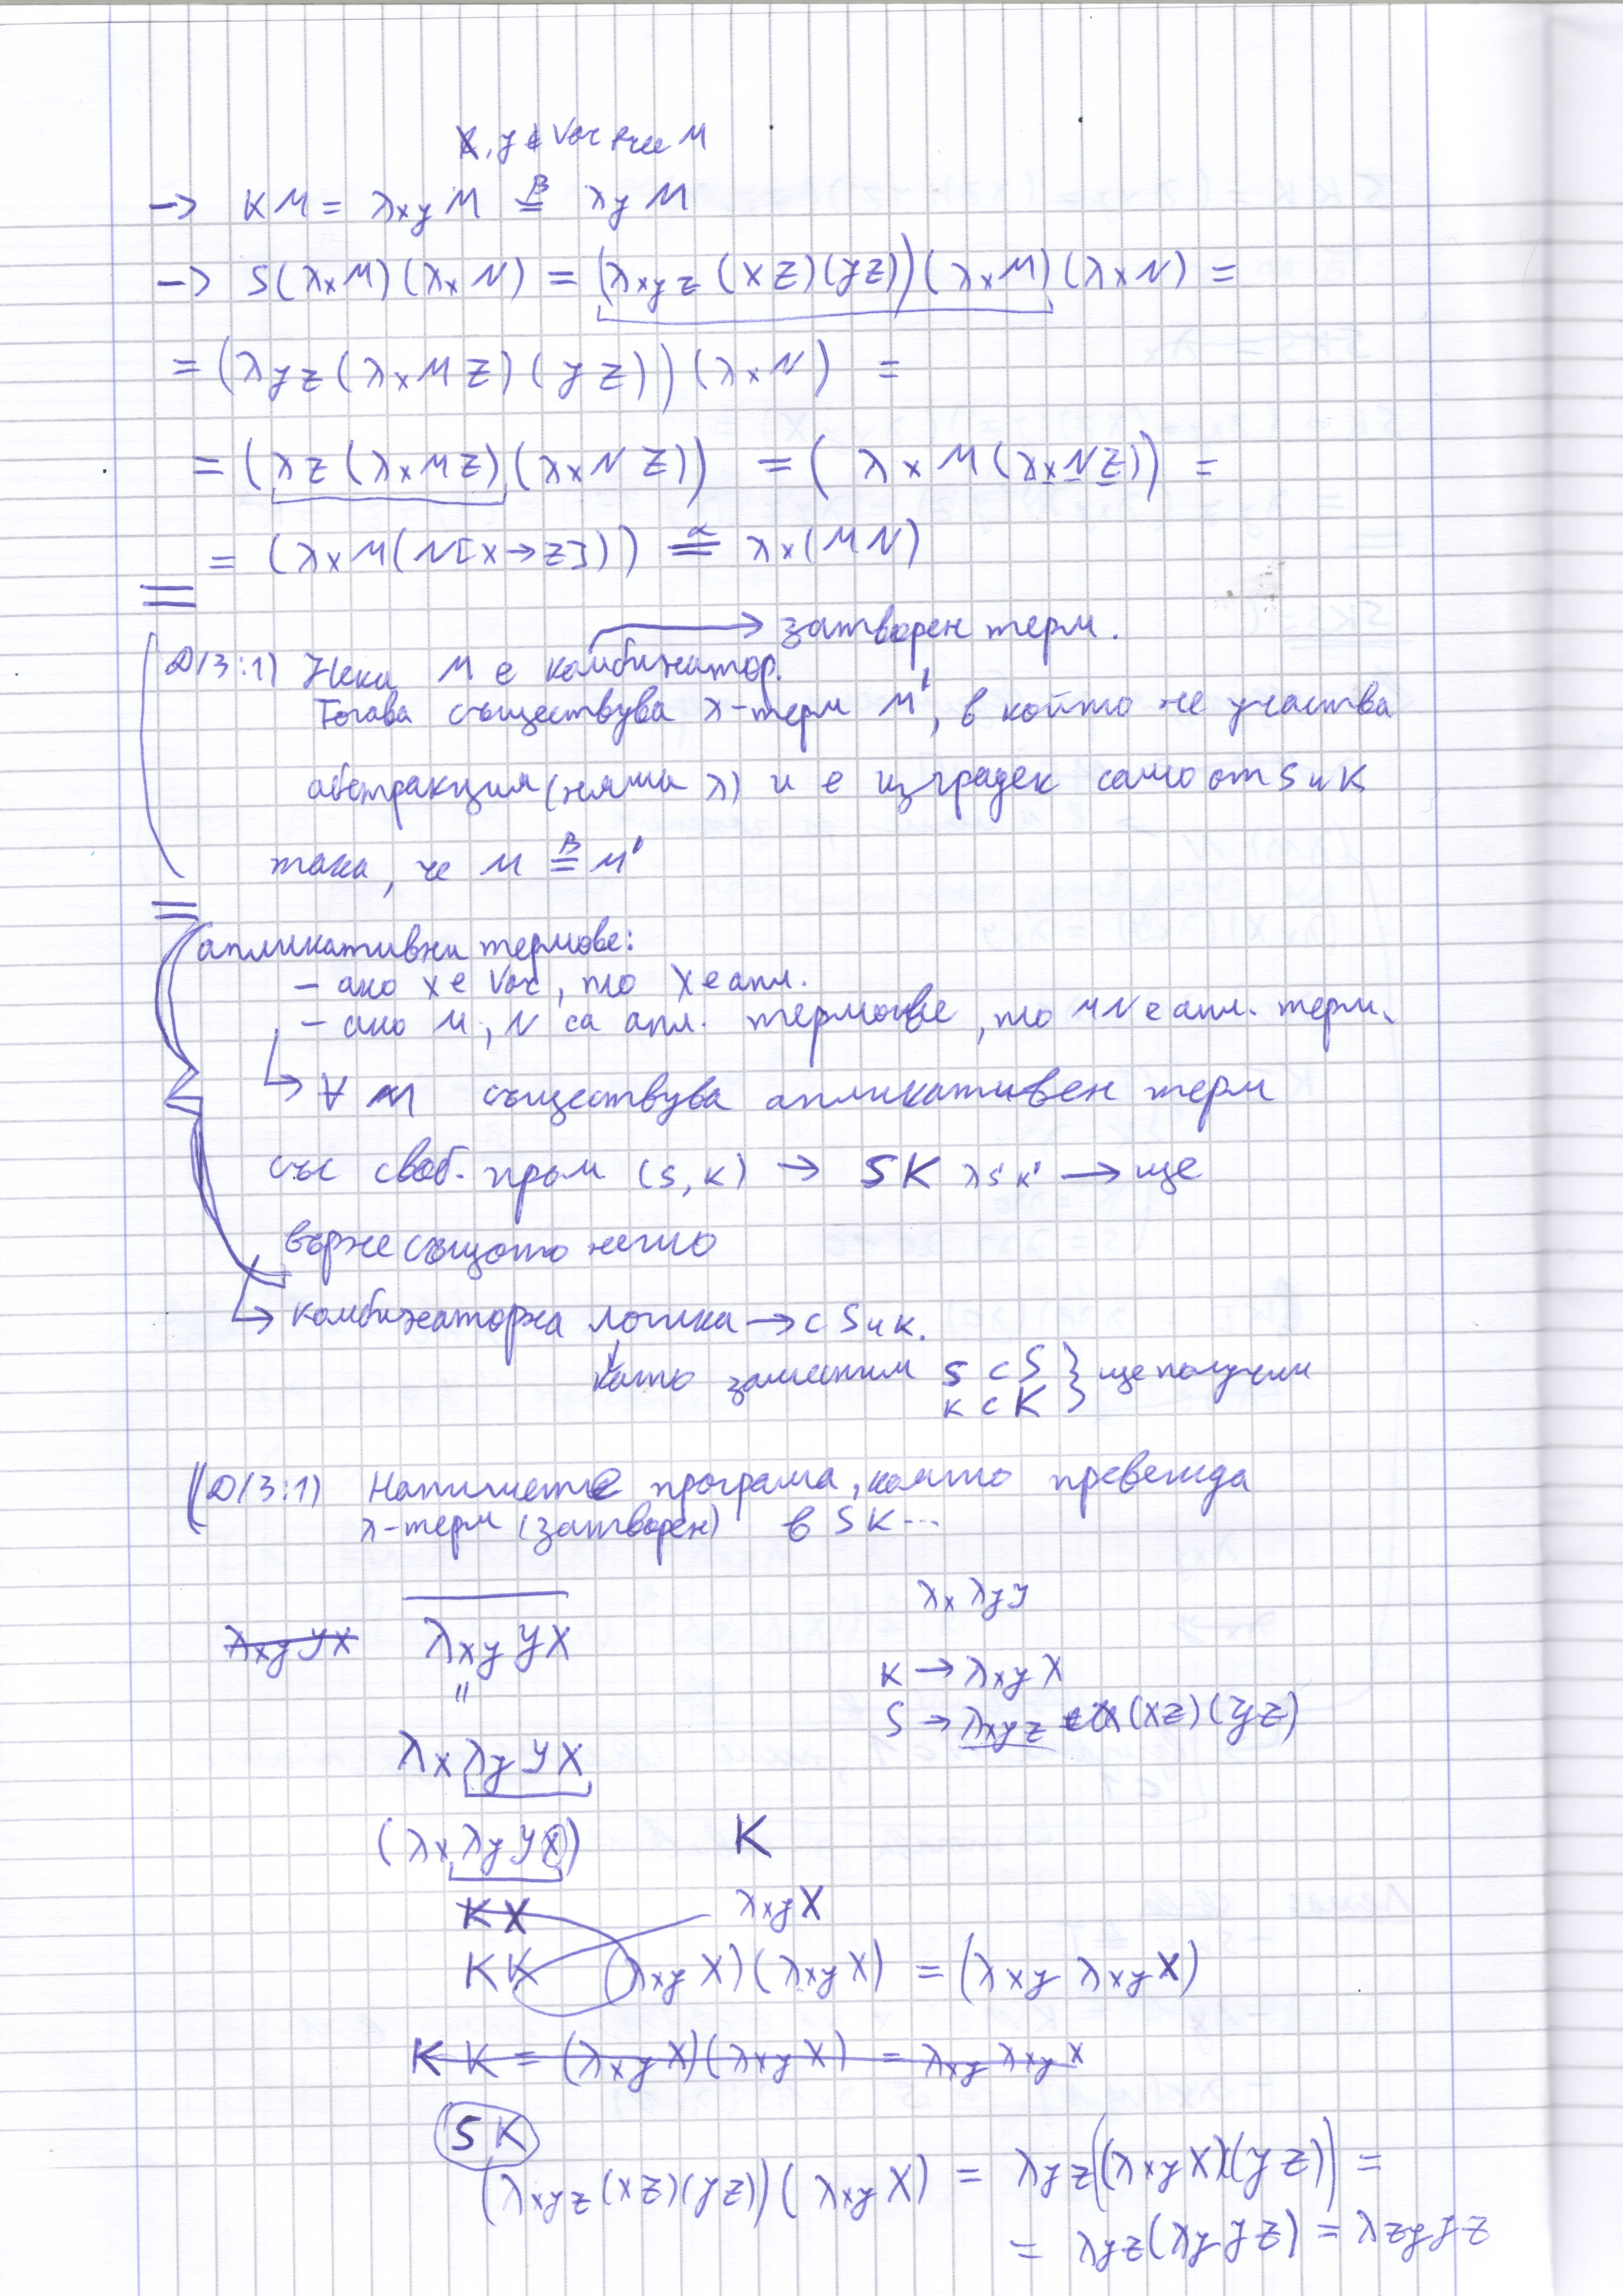 x, y ∉ Var free M
→ K M = λxy M β= λy M
→ S(λx M)(λx N) = (λxyz (xz)(yz))(λx M)(λx N) =
= (λyz (λx M z)(yz))(λx N) =
= (λz (λx M z)(λx N z)) = (λx M (λx N z)) =
= (λx M(N[x→z])) α= λx(MN)
→ затворен терм.
Д/З:1) Нека M е комбинатор.
Тогава съществува λ-терм M', в който не участва
абстракция (няма λ) и е изграден само от S и K
така, че M β= M'
апликативни термове:
- ако x е Var, то x е апл.
- ако M, N са апл. термове, то MN е апл. терм.
↳ ∀ M съществува апликативен терм
със своб. пром (s, k) → SK λs'k' → ще
върне същото нещо
↳ комбинаторна логика → с S и K.
като заместим s с S } ще получим
k с K
Д/З:1) Напишете програма, която превежда
λ-терм (затворен) в SK...
λx λy y
λxy yx λxy yx
K → λxy x
"
S → λxyz (xz)(yz)
λx λy y x
(λx λy y x) K
K X λxy x
K K (λxy x)(λxy x) = (λxy λxy x)
K K = (λxy x)(λxy x) = λxy λxy x
S K
(λxyz (xz)(yz))(λxy x) = λyz((λxy x)(yz)) =
= λyz(λy yz) = λzy yz